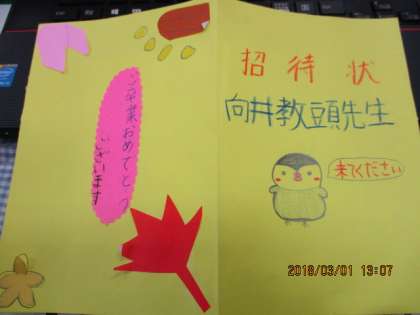 招待状
向井教頭先生
来てください
ご卒業おめでとう
ございます
2018/03/01 13:07